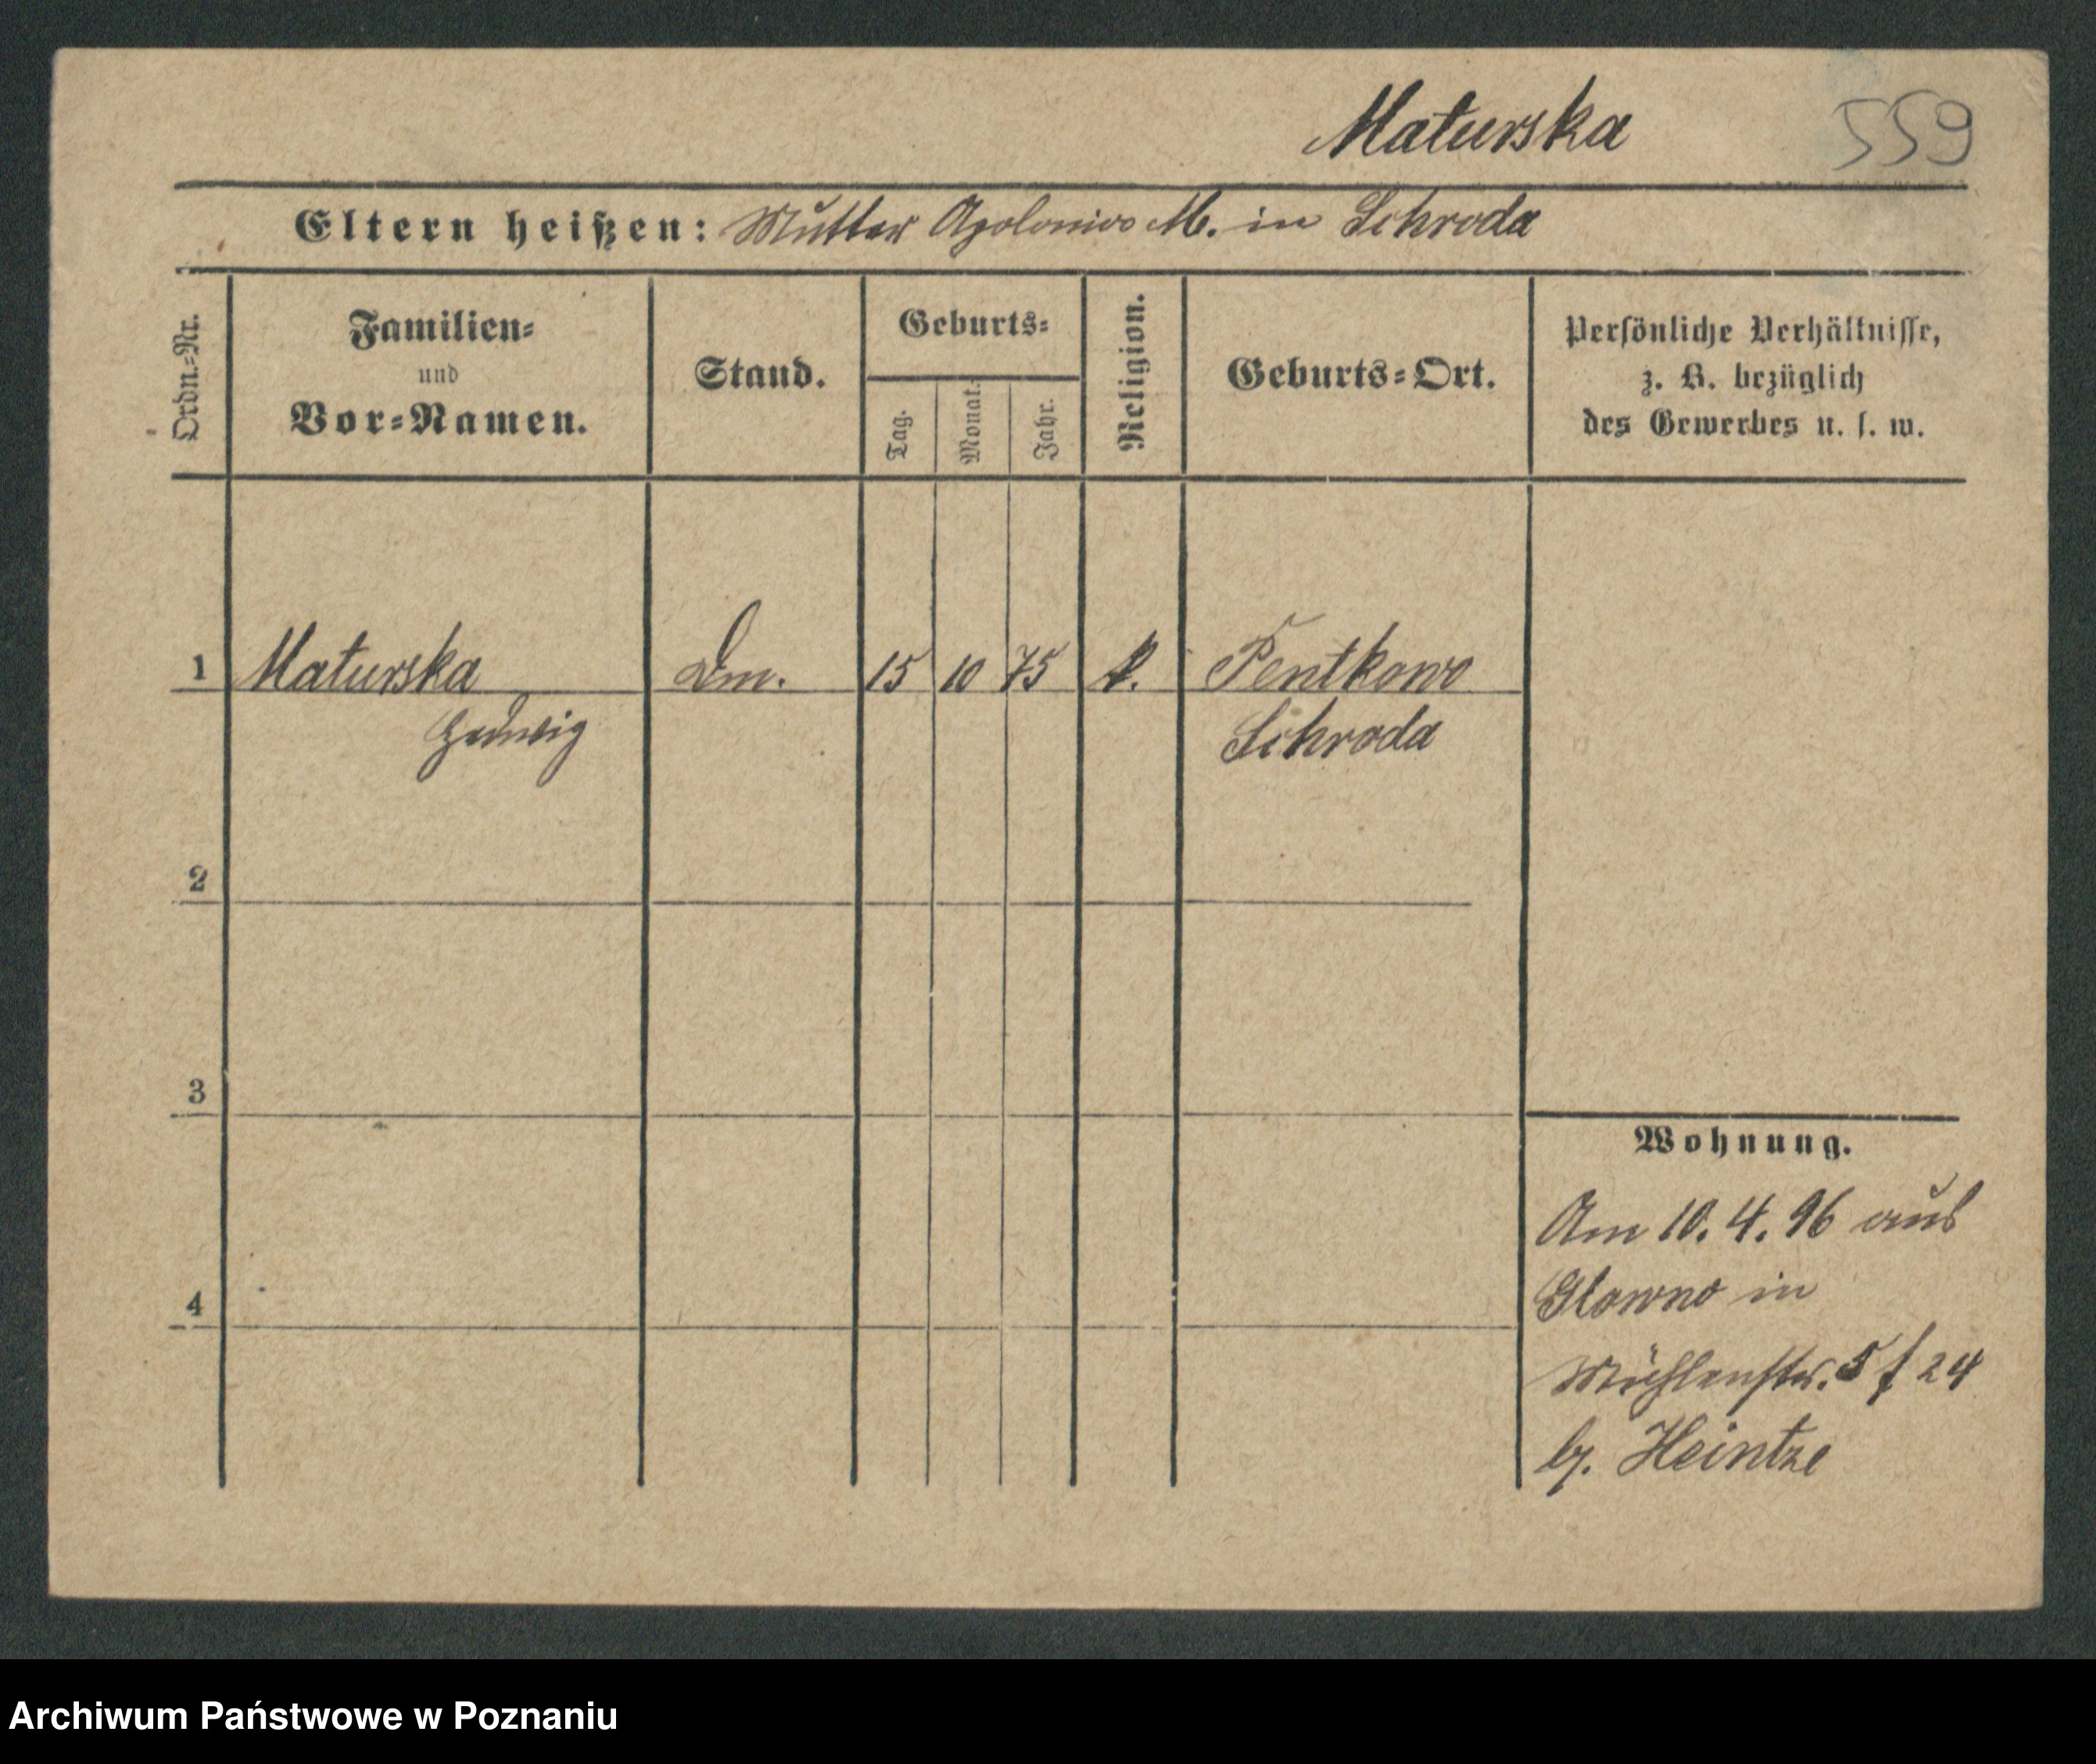 Maturska
559
Eltern heißen: Mutter Apolonia M. in Schroda
Ordn.-Nr.
Familien-
und
Vor-Namen.
Stand.
Geburts-
Tag.
Monat.
Jahr.
Religion.
Geburts-Ort.
Persönliche Verhältnisse,
z. B. bezüglich
des Gewerbes u. s. w.
1 Maturska Dm. 15 10 75 k. Pentkowo
Hedwig Schroda
2
3
4
Wohnung.
Am 10. 4. 96 aus
Glowno in
Mühlenstr. 5 f 24
b. Heintze
Archiwum Państwowe w Poznaniu